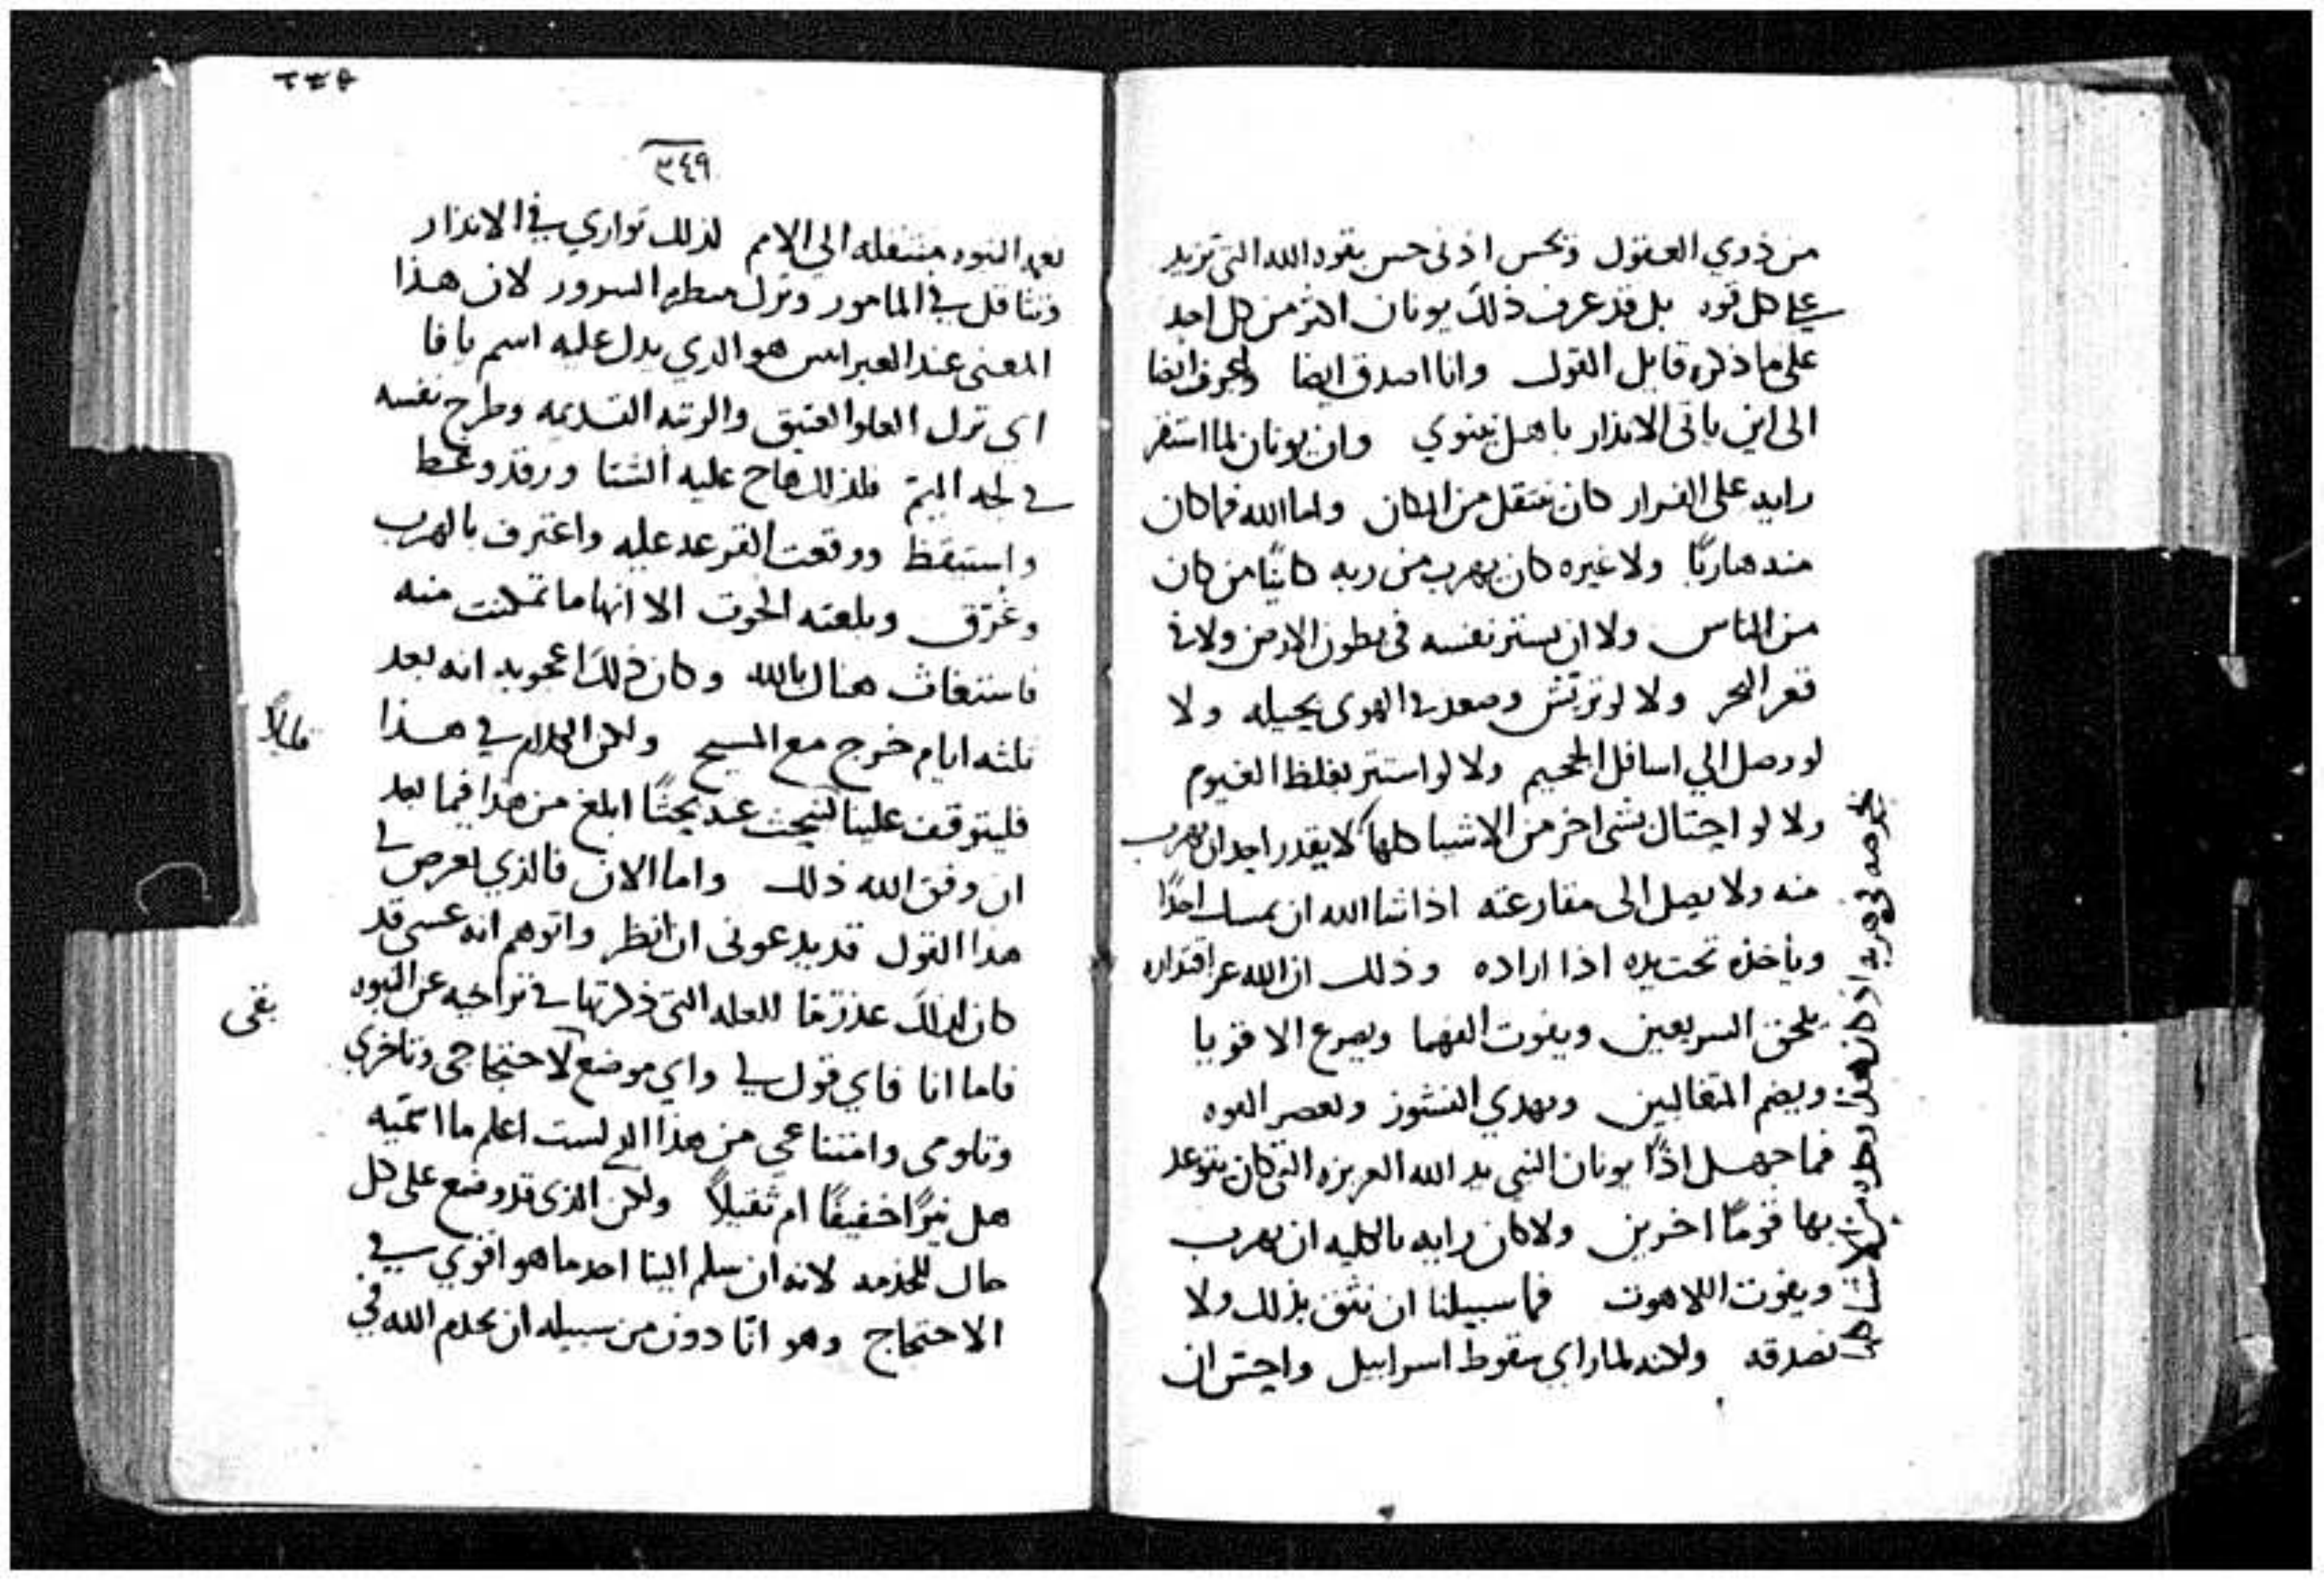 من ذوي العقول وتحس اذنى حس بقوه الله التى تزيد
على كل قوه بل قد عرف ذلك يونان اكثر من كل احد
على ما ذكره قايل القول وانا اصدق ايضا
الى اين ياتى الانذار باهل نينوي وان يونان لما استقر
رايه على الفرار كان ينتقل من المكان واما الله فما كان
منه هاربًا ولا غيره كان يهرب من ربه كاينًا من كان
من الناس ولا ان يستر نفسه فى بطون الارض ولا فى
قعر البحر ولا لو تريّش وصعد فى الهوى بحيله ولا
لو وصل الي اسافل الجحيم ولا لو استتر بغلظ الغيوم
ولا لو احتال بشى اخر من الاشيا كلها لا يقدر احد ان يهرب
منه ولا يصل الى مقارعته اذا شا الله ان يمسك احدًا
وياخذه تحت يده اذا اراده وذلك ان الله عز اقتداره
يلحق السريعين ويفوت الفهما ويصرع الاقويا
ويضم المتغالبين ويهدي النشوز القوه
فما جهل اذًا يونان النبي يد الله العزيزه التى كان يتوعد
بها قومًا اخرين ولا كان رايه بالكليه ان يهرب
ويفوت اللاهوت فما سبيلنا ان نثق بذلك ولا
نصدقه ولانه لما راي سقوط اسراييل واحتس ان
فى هربه اذ كان هذا من الاشيا كلها
٣٤٩
نعمه النبوه منتقله الى الامم لذلك تواري فى الانذار
وتثاقل فى المامور وترك منظره السرور لان هذا
المعنى عند العبرانيين هو الدي يدل عليه اسم يافا
اى ترك العلو العتيق والرتبه القديمه وطرح نفسه
فى لجه اليمّ فلذلك هاح عليه الشتا ورقد وغط
واستيقظ ووقعت القرعه عليه واعترف بالهرب
وغرّق وبلعته الحوت الا انها ما تمكنت منه
فاستغاث هناك بالله وكان ذلك اعجوبه انه بعد
ثلثه ايام خرج مع المسيح ولكن الكلام فى هذا
فليتوقف علينا لنبحث عنه بحثًا ابلغ من هذا فيما بعد
ان وفق الله ذلك واما الان فالذي لعرض لى
هدا القول قد يدعونى ان انظر واتوهم انه عسى قد
كان لذلك عذر ما للعله التى ذكرتها فى تراخيه عن النبوه
فاما انا فاي قول لي واي موضع لاحتجاجى وتاخري
وتلومى وامتناعي من هذا الم لست اعلم ما اسميه
هل نيرًا خفيفًا ام ثقيلاً ولكن الذى قد وضع على كل
حال للخدمه لانه ان سلم الينا احد ما هو اقوي فى
الاحتجاج وهو انّا دون من سبيله ان يخدم الله فى
بقى